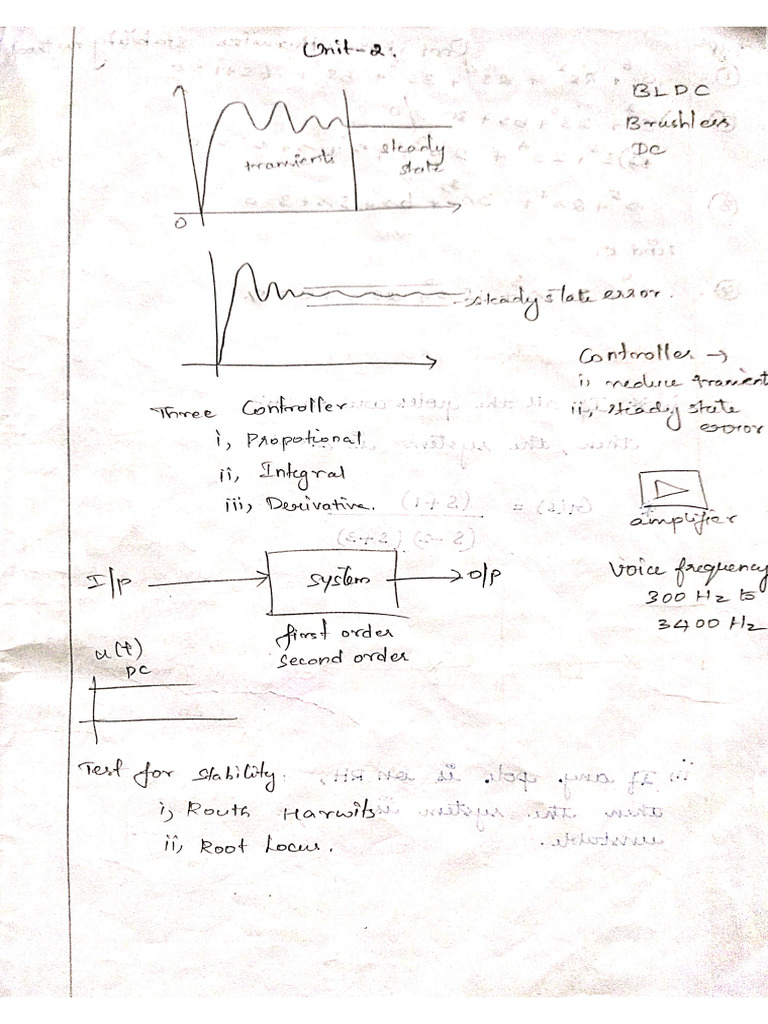 Unit-2.
BLDC
Brushless
DC
transients
steady
state
0
steady state error.
Controller →
i, reduce transient
ii, steady state
error
Three Controller
i, Propotional
ii, Integral
iii, Derivative.
amplifier
I/p
system
O/p
first order
second order
Voice frequency
300 Hz to
3400 Hz
u(t)
DC
Test for stability.
i, Routh Harwits
ii, Root Locus.